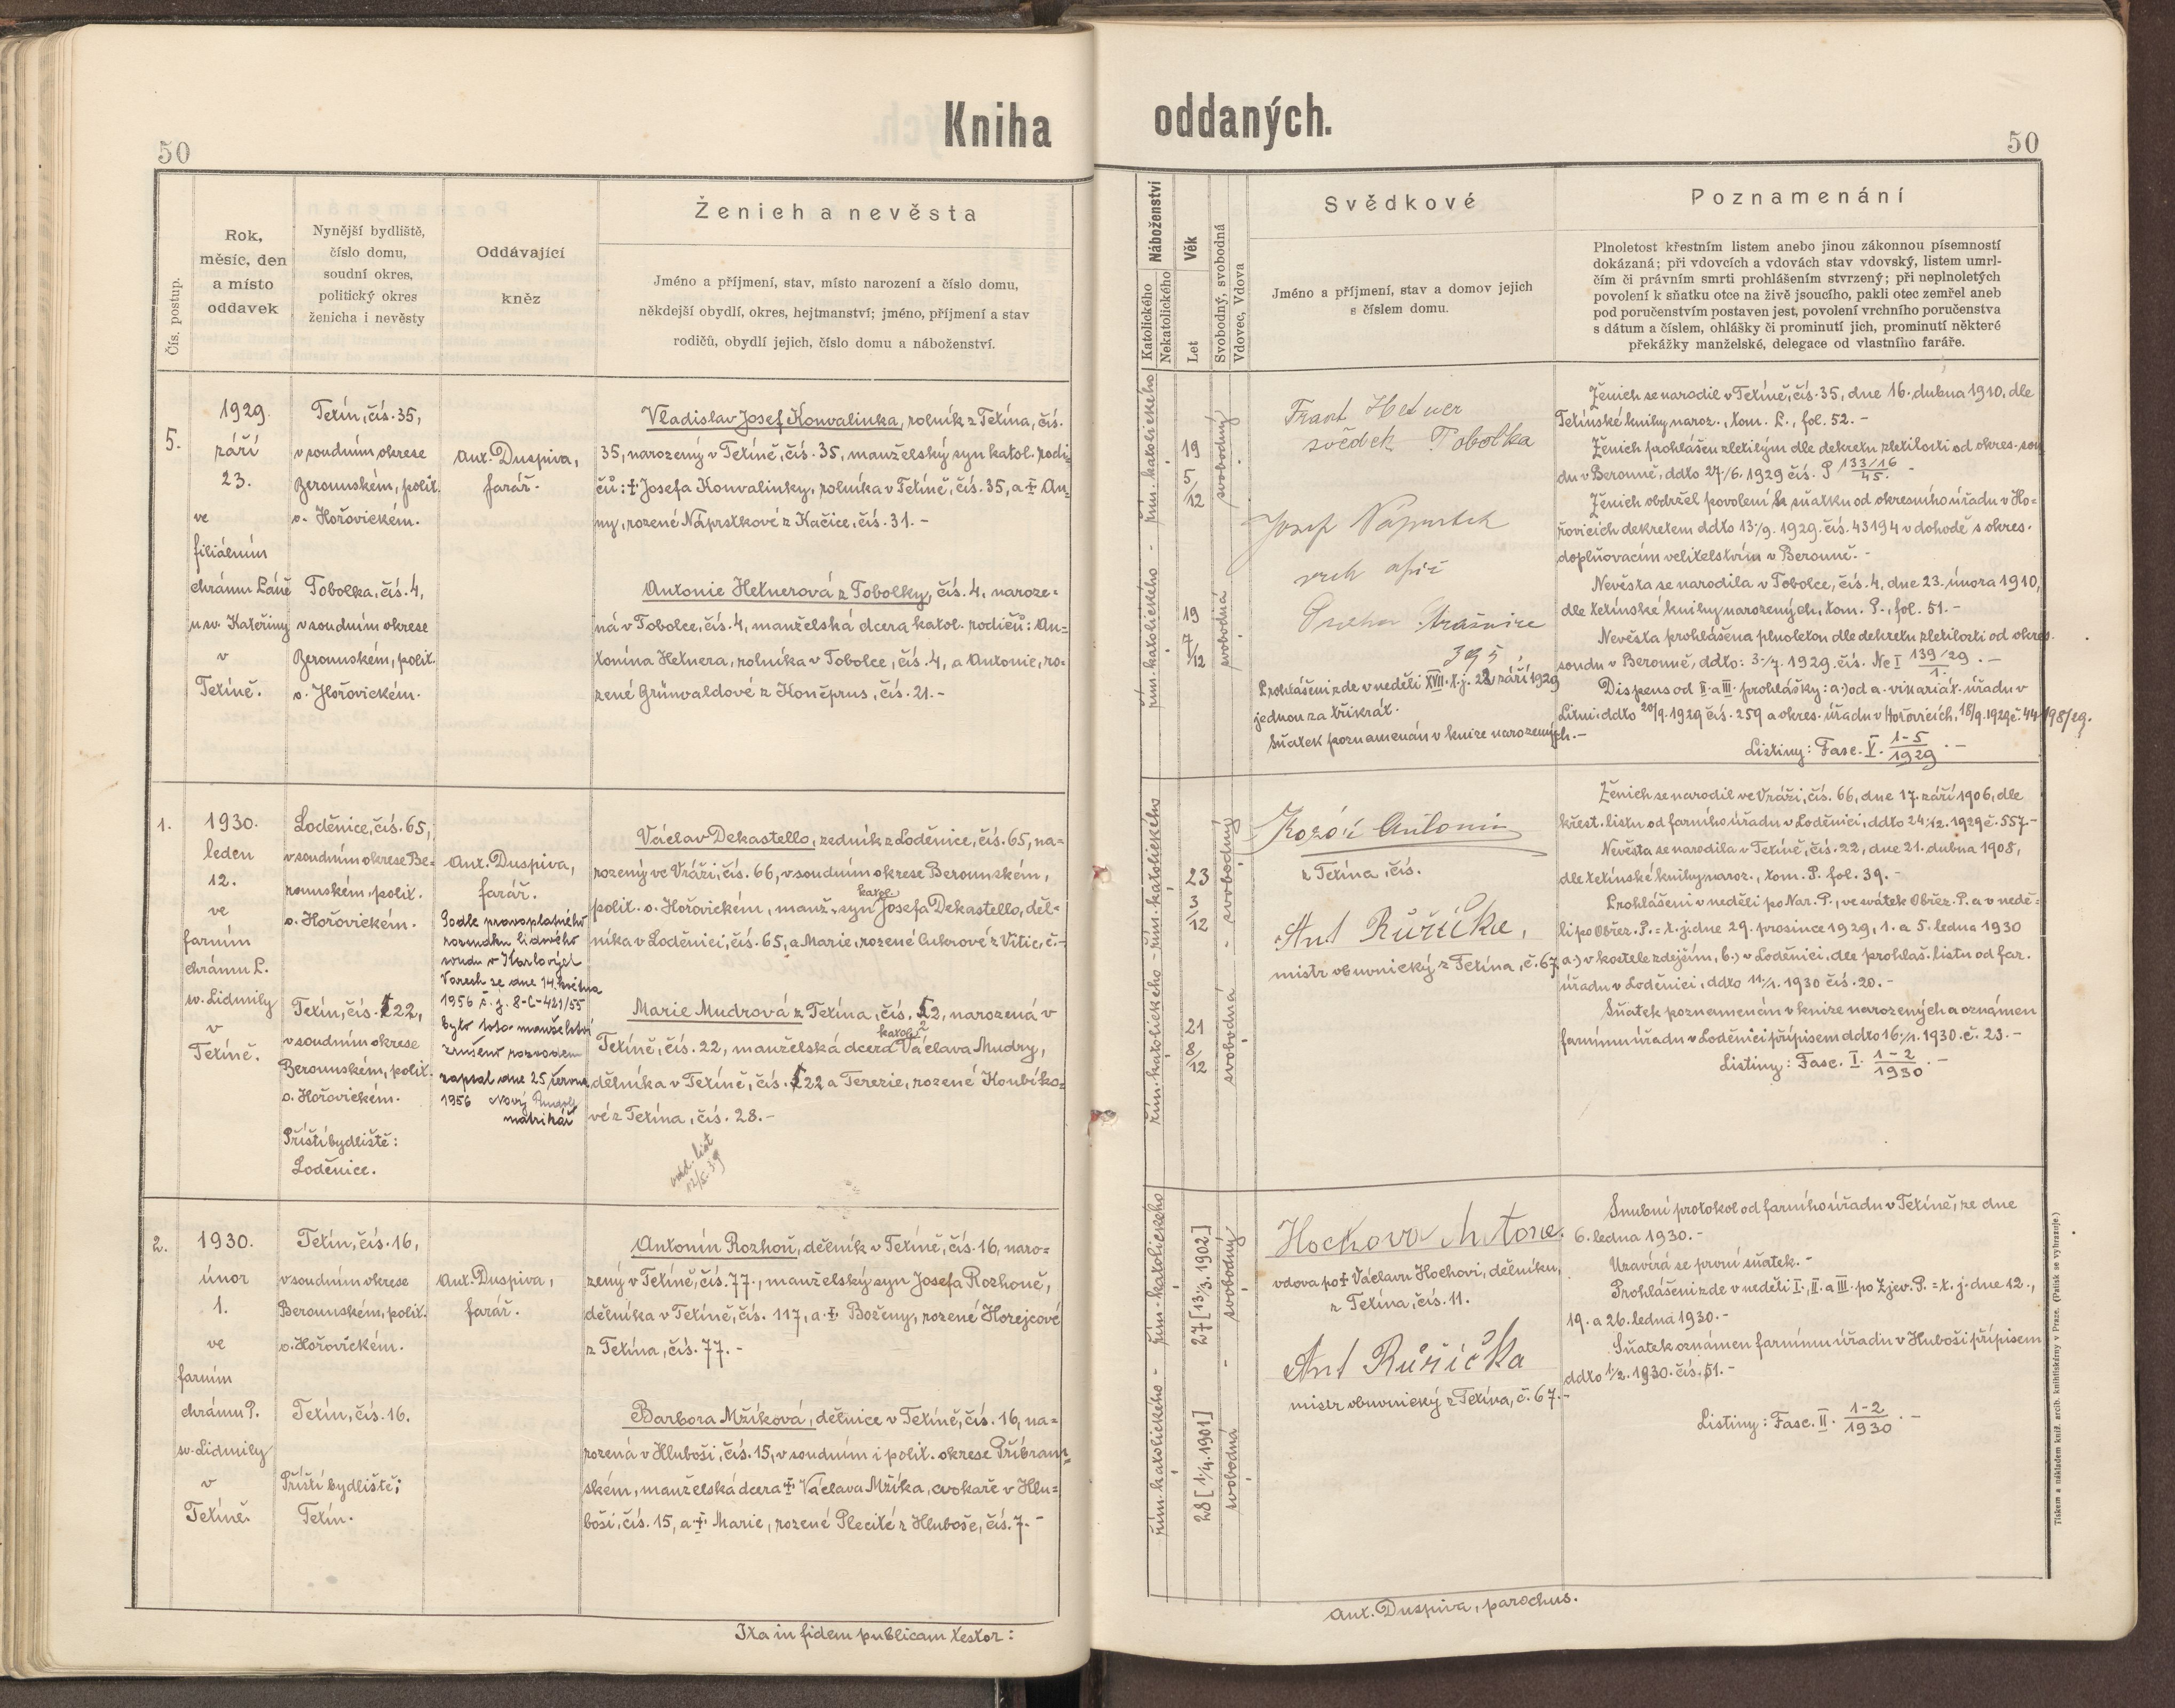 50
Kniha
Čís. postup.
Rok,
měsíc, den
a místo
oddavek
Nynější bydliště,
číslo domu,
soudní okres,
politický okres
ženicha i nevěsty
Oddávající
kněz
Ženich a nevěsta
Jméno a příjmení, stav, místo narození a číslo domu,
někdejší obydlí, okres, hejtmanství; jméno, příjmení a stav
rodičů, obydlí jejich, číslo domu a náboženství.
5.
1929.
září
23.
ve
filiálním
chrámu Páně
u sv. Kateřiny
v
Tetíně.
Tetín, čís. 35,
v soudním okrese
Berounském, polit.
o. Hořovickém.
Tobolka, čís. 4,
v soudním okrese
Berounském, polit.
o. Hořovickém.
Ant. Duspiva,
farář.
Vladislav Josef Konvalinka, rolník z Tetína, čís.
35, narozený v Tetíně, čís. 35, manželský syn katol. rodi-
čů: † Josefa Konvalinky, rolníka v Tetíně, čís. 35, a † An-
ny, rozené Náprstkové z Kačice, čís. 31. –
Antonie Hetnerová z Tobolky, čís. 4, naroze-
ná v Tobolce, čís. 4, manželská dcera katol. rodičů: An-
tonína Hetnera, rolníka v Tobolce, čís. 4, a Antonie, ro-
zené Grünwaldové z Koněprus, čís. 21. –
1.
1930.
leden
12.
ve
farním
chrámu P.
sv. Lidmily
v
Tetíně.
Loděnice, čís. 65,
v soudním okrese Be-
rounském, polit.
o. Hořovickém.
Tetín, čís. 22,
v soudním okrese
Berounském, polit.
o. Hořovickém.
Příští bydliště:
Loděnice.
Ant. Duspiva,
farář.
Podle pravoplatného
rozsudku lidového
soudu v Karlových
Varech ze dne 14. května
1956 č. j. 8-C-421/55
bylo toto manželství
zrušeno rozvodem
zapsal dne 25 června
1956 Nový Rudolf
matrikář
Václav Dekastello, zedník z Loděnice, čís. 65, na-
rozený ve Vráži, čís. 66, v soudním okrese Berounském,
katol.
polit. o. Hořovickém, manž. syn Josefa Dekastello, děl-
níka v Loděnici, čís. 65, a Marie, rozené Cukrové z Vitic, č.–
Marie Mudrová z Tetína, čís. 22, narozená v
katol.
Tetíně, čís. 22, manželská dcera Václava Mudry,
dělníka v Tetíně, čís. 22 a Terezie, rozené Koubíko-
vé z Tetína, čís. 28. –
odd. list
12/5. 39
2.
1930.
únor
1.
ve
farním
chrámu P.
sv. Lidmily
v
Tetíně.
Tetín, čís. 16,
v soudním okrese
Berounském, polit.
o. Hořovickém.
Tetín, čís. 16.
Příští bydliště:
Tetín.
Ant. Duspiva,
farář.
Antonín Rozhoň, dělník v Tetíně, čís. 16, naro-
zený v Tetíně, čís. 77., manželský syn Josefa Rozhoně,
dělníka v Tetíně, čís. 117, a † Boženy, rozené Horejcové
z Tetína, čís. 77. –
Barbora Mžíková, dělnice v Tetíně, čís. 16, na-
rozená v Hluboši, čís. 15, v soudním i polit. okrese Příbram-
ském, manželská dcera † Václava Mžíka, cvokaře v Hlu-
boši, čís. 15, a † Marie, rozené Plecité z Hluboše, čís. 7. –
Ita in fidem publicam testor:
oddaných.
50
Náboženství
Katolického
Nekatolického
Věk
Let
Svobodný, svobodná
Vdovec, Vdova
Svědkové
Jméno a příjmení, stav a domov jejich
s číslem domu.
Poznamenání
Plnoletost křestním listem anebo jinou zákonnou písemností
dokázaná; při vdovcích a vdovách stav vdovský, listem umrl-
čím či právním smrti prohlášením stvrzený; při neplnoletých
povolení k sňatku otce na živě jsoucího, pakli otec zemřel aneb
pod poručenstvím postaven jest, povolení vrchního poručenstva
s dátum a číslem, ohlášky či prominutí jich, prominutí některé
překážky manželské, delegace od vlastního faráře.
řím. katolického – řím. katolického
19
5/12
19
7/12
svobodný
svobodná
Frant Hetner
svědek Tobolka
Josef Náprstek
Praha Strašnice
395
Prohlášeni zde v neděli XVII. t. j. 22 září 1929
jednou za třikrát.
Sňatek poznamenán v knize narozených. –
Ženich se narodil v Tetíně, čís. 35, dne 16. dubna 1910, dle
Tetínské knihy naroz., tom. P., fol. 52. –
Ženich prohlášen zletilým dle dekretu zletilosti od okres. sou
du v Berouně, ddto 27/6. 1929 čís. P 133/16 / 45. –
Ženich obdržel povolení ke sňatku od okresního úřadu v Ho-
řovicích dekretem ddto 13/9. 1929. čís. 43194 v dohodě s okres.
doplňovacím velitelstvím v Berouně. –
Nevěsta se narodila v Tobolce, čís. 4, dne 23. února 1910,
dle tetínské knihy narozených, tom. P., fol. 51. –
Nevěsta prohlášena plnoletou dle dekretu zletilosti od okres.
soudu v Berouně, ddto: 3./7. 1929. čís. Nc I 139/29 / 1. –
Dispens od II. a III. prohlášky: a.) od a. vikariát. úřadu v
Litni: ddto 20/9. 1929 čís. 259 a okres. úřadu v Hořovicích, 18/9. 1929 č. 44198/29.
Listiny: Fasc. V. 1-5 / 1929. –
řím. katolického – řím. katolického
23
3/12
21
8/12
svobodný
svobodná
Antonín
z Tetína, čís.
Ant Růžička,
mistr obuvnický z Tetína, č. 67.
Ženich se narodil ve Vráži, čís. 66, dne 17. září 1906, dle
křest. listu od farního úřadu v Loděnici, ddto 24/12. 1929 č. 557 –
Nevěsta se narodila v Tetíně, čís. 22, dne 21. dubna 1908,
dle tetínské knihy naroz., tom. P. fol. 39. –
Prohlášeni v neděli po Nar. P., ve svátek Obřez. P. a v nedě-
li po Obřez. P. = t. j. dne 29. prosince 1929, 1. a 5. ledna 1930
a.) v kostele zdejším, b.) v Loděnici, dle prohláš. listu od far.
úřadu v Loděnici, ddto 11/1. 1930 čís. 20. –
Sňatek poznamenán v knize narozených a oznámen
farnímu úřadu v Loděnici přípisem ddto 16/1. 1930. č. 23. –
Listiny: Fasc. I. 1-2 / 1930. –
řím. katolického – řím. katolického
27 [13/3. 1902]
28 [1/4. 1901]
svobodný
svobodná
Hochova Antonie.
vdova po † Václavu Hochovi, dělníku,
z Tetína, čís. 11.
Ant Růžička
mistr obuvnický z Tetína, č. 67. –
Snubní protokol od farního úřadu v Tetíně, ze dne
6. ledna 1930. –
Uzavírá se první sňatek. –
Prohlášeni zde v neděli I., II. a III. po Zjev. P. = t. j. dne 12.,
19. a 26. ledna 1930. –
Sňatek oznámen farnímu úřadu v Hluboši přípisem
ddto 1/2. 1930. čís. 51. –
Listiny: Fasc. II. 1-2 / 1930. –
Ant. Duspiva, parochus.
Tiskem a nákladem kníž. arcib. knihtiskárny v Praze. (Patisk se vyhrazuje.)